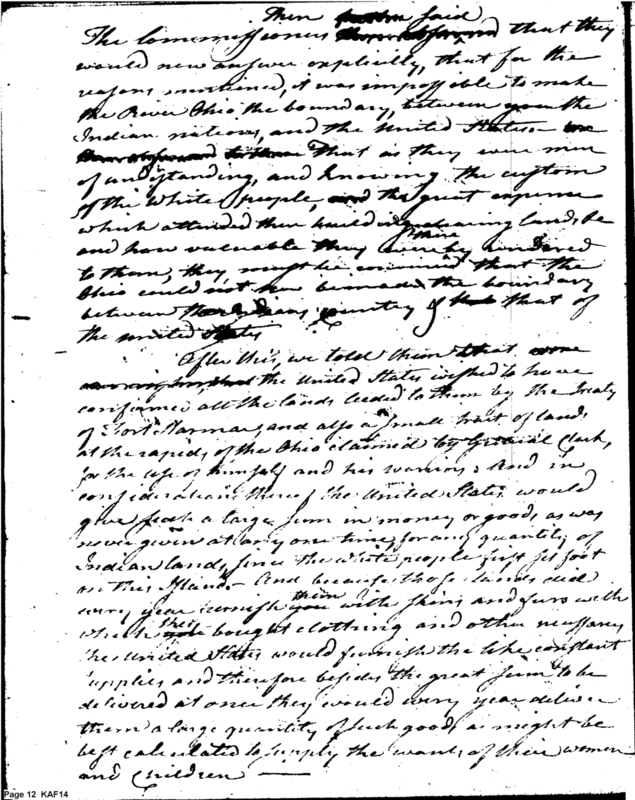 Then said
The Commissioners that they
would now answer explicitly, that for the
reasons mentioned, it was impossible to make
the River Ohio the boundary, between you the
Indian nations, and the United States
That as they were men
of understanding, and knowing the custom
of the White people, the great expence
which attended their buildings clearing lands &c
and how valuable they were thereby rendered
to them, they must be convinced that the
Ohio could not now be made the boundary
between the Indians country & that of
the united States
After this, we told them that
the United States wished to have
confirmed all the lands ceded to them by the Treaty
of Fort Harmar, and also a small tract of land
at the rapids of the Ohio claimed by General Clark,
for the use of himself and his warriors: And in
consideration thereof the United States would
give such a large sum in money or goods as was
never given at any one time, for any quantity of
Indian lands, since the white people first set foot
on this Island. And because those lands did
every year furnish you them with skins and furs with
which you they bought clothing and other necessarys
the United States would furnish the like constant
supplies and therefore besides the great sum to be
delivered at once they would every year deliver
them a large quantity of such goods as might be
best calculated to supply the wants of their women
and Children
Page 12 KAF14